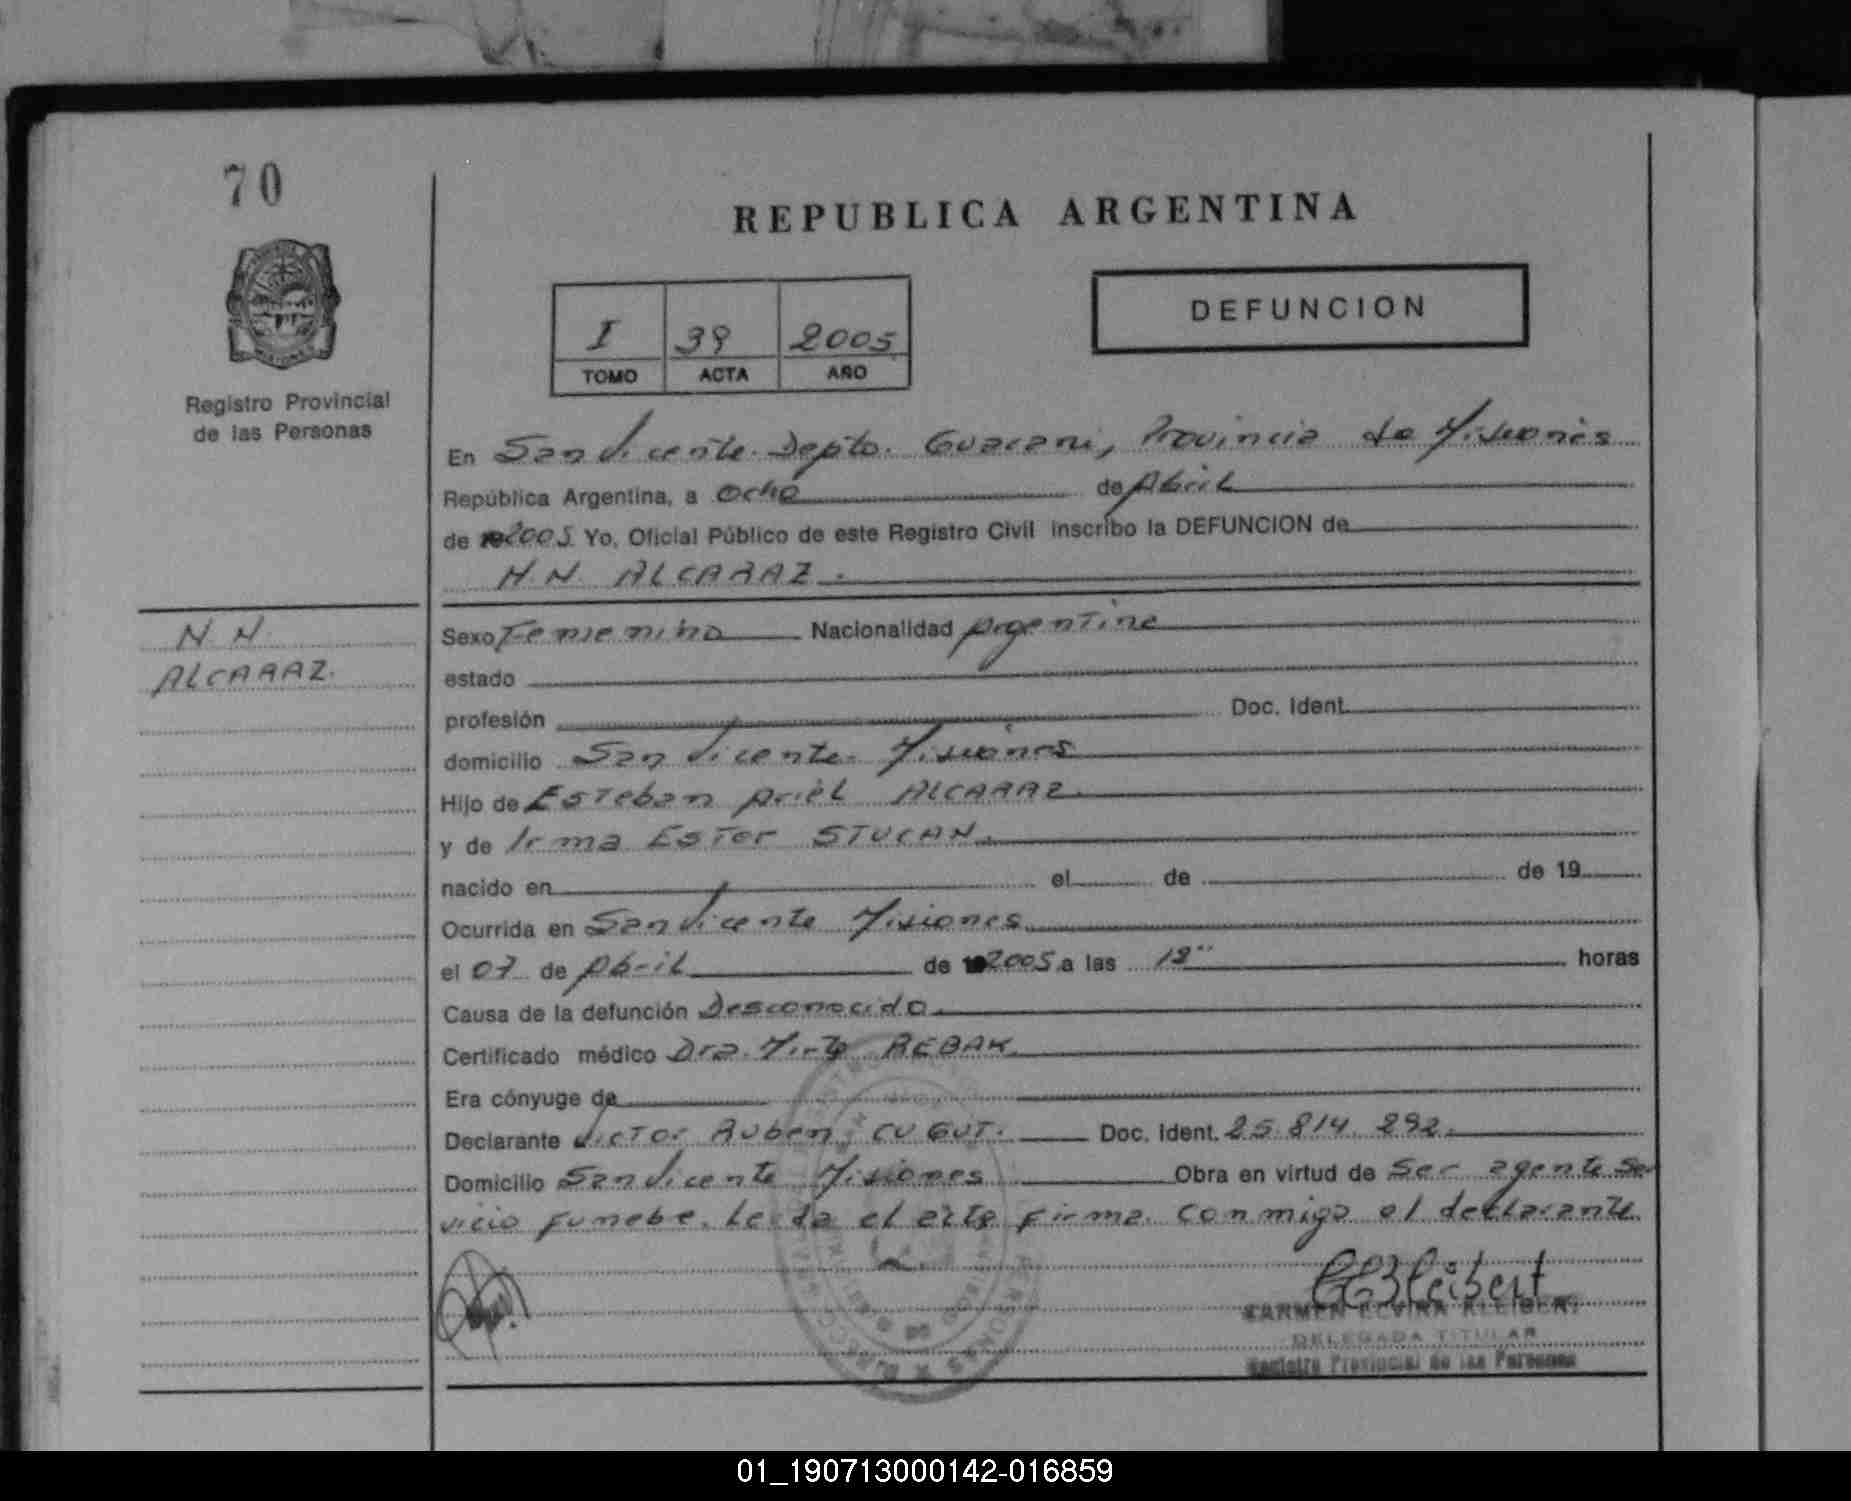 70
REPUBLICA ARGENTINA
DEFUNCION
I 39 2005
TOMO ACTA AÑO
Registro Provincial
de las Personas
En San Vicente. Depto. Guarani, Provincia de Misiones
República Argentina, a Ocho de Abril
de 2005 Yo, Oficial Público de este Registro Civil inscribo la DEFUNCION de
N.N. ALCARAZ.
N.N.
ALCARAZ.
Sexo Femenino Nacionalidad Argentina
estado
profesión Doc. Ident.
domicilio San Vicente. Misiones
Hijo de Esteban Ariel ALCARAZ.
y de Irma Ester STUCAN.
nacido en el de de 19
Ocurrida en San Vicente Misiones
el 07 de Abril de 2005 a las horas
Causa de la defunción Desconocido.
Certificado médico Dra. Mirta REBAK
Era cónyuge de
Declarante Victor Ruben CUGUT. Doc. Ident. 25.814.292.
Domicilio San Vicente Misiones Obra en virtud de Ser agente Ser
vicio funebre. Leida el acta firma conmigo el declarante
CEKleibert
CARMEN ELVIRA KLEIBERT
DELEGADA TITULAR
Registro Provincial de las Personas
01_190713000142-016859